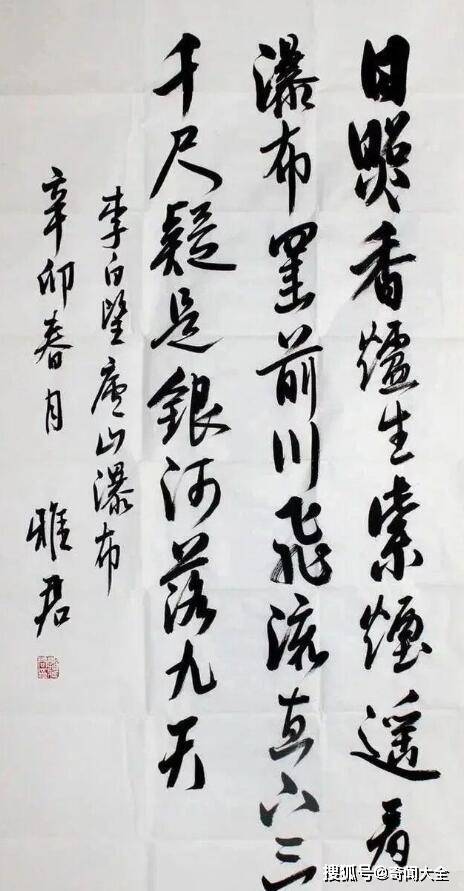 日照香爐生紫煙遥看
瀑布罣前川飛流直下三
千尺疑是銀河落九天
李白望廬山瀑布
辛卯春月 雅君
搜狐号@奇闻大全